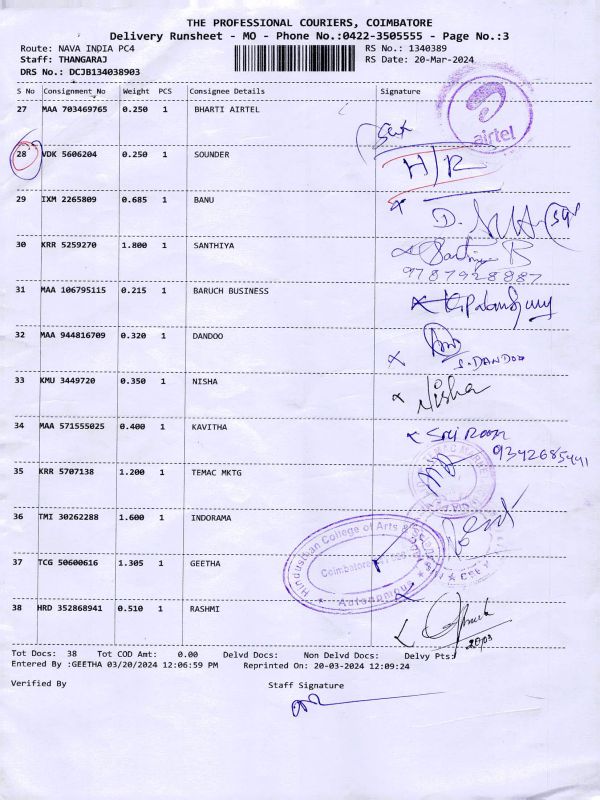 THE PROFESSIONAL COURIERS, COIMBATORE
Delivery Runsheet - MO - Phone No.:0422-3505555 - Page No.:3
Route: NAVA INDIA PC4 RS No.: 1340389
Staff: THANGARAJ RS Date: 20-Mar-2024
DRS No.: DCJB134038903
S No Consignment_No Weight PCS Consignee Details Signature
27 MAA 703469765 0.250 1 BHARTI AIRTEL
airtel
28 VDK 5606204 0.250 1 SOUNDER
H/R
29 IXM 2265809 0.685 1 BANU
D.
30 KRR 5259270 1.800 1 SANTHIYA
9787928887
31 MAA 106795115 0.215 1 BARUCH BUSINESS
32 MAA 944816709 0.320 1 DANDOO
S.DANDOO
33 KMU 3449720 0.350 1 NISHA
Nisha
34 MAA 571555025 0.400 1 KAVITHA
Sri Ram
9342685441
35 KRR 5707138 1.200 1 TEMAC MKTG
36 TMI 30262288 1.600 1 INDORAMA
Hindusthan College of Arts &
37 TCG 50600616 1.305 1 GEETHA
Coimbatore
Autonomous
38 HRD 352868941 0.510 1 RASHMI
20/03
Tot Docs: 38 Tot COD Amt: 0.00 Delvd Docs: Non Delvd Docs: Delvy Pts:
Entered By :GEETHA 03/20/2024 12:06:59 PM Reprinted On: 20-03-2024 12:09:24
Verified By Staff Signature